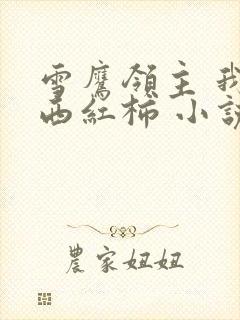 雪鷹領主 我
西紅柿 小說
農家妞妞